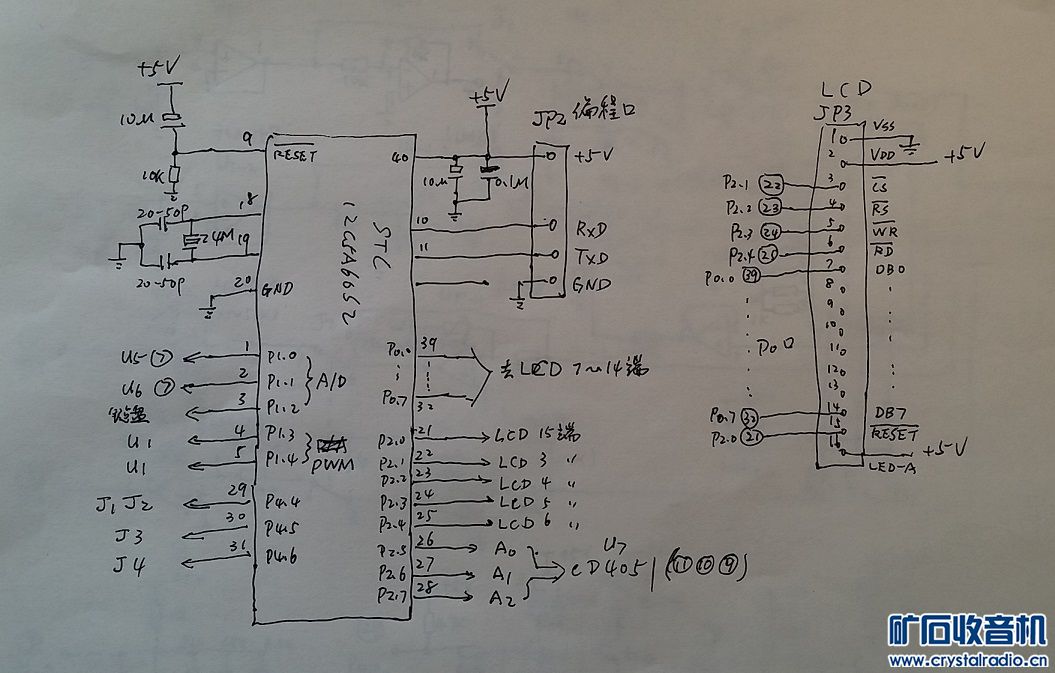 +5V
10μ
9
RESET
10K
20-50P
18
24M
19
20-50P
20
GND
STC
12C5A60S2
40
+5V
10μ
0.1μ
JP2 编程口
+5V
10
RXD
11
TXD
GND
U5⑦
1
P1.0
U6⑦
2
P1.1
A/D
键盘
3
P1.2
U1
4
P1.3
U1
5
P1.4
PWM
J1 J2
29
P4.4
J3
30
P4.5
J4
31
P4.6
P0.0
39
去LCD 7~14端
P0.7
32
P2.0
21
LCD 15端
P2.1
22
LCD 3 〃
P2.2
23
LCD 4 〃
P2.3
24
LCD 5 〃
P2.4
25
LCD 6 〃
P2.5
26
A0
P2.6
27
A1
P2.7
28
A2
U7
CD4051(⑪⑩⑨)
LCD
JP3
1
VSS
2
VDD
+5V
P2.1 ㉒
3
CS
P2.2 ㉓
4
RS
P2.3 ㉔
5
WR
P2.4 ㉕
6
RD
P0.0 ㊴
7
DB0
8
9
10
11
P0口
12
13
P0.7 ㉜
14
DB7
P2.0 ㉑
15
RESET
16
+5V
LED-A
矿石收音机
www.crystalradio.cn